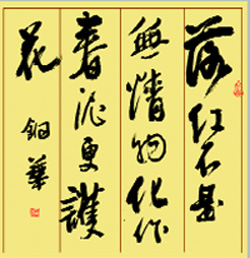 落红不是
無情物化作
春泥更護
花
華